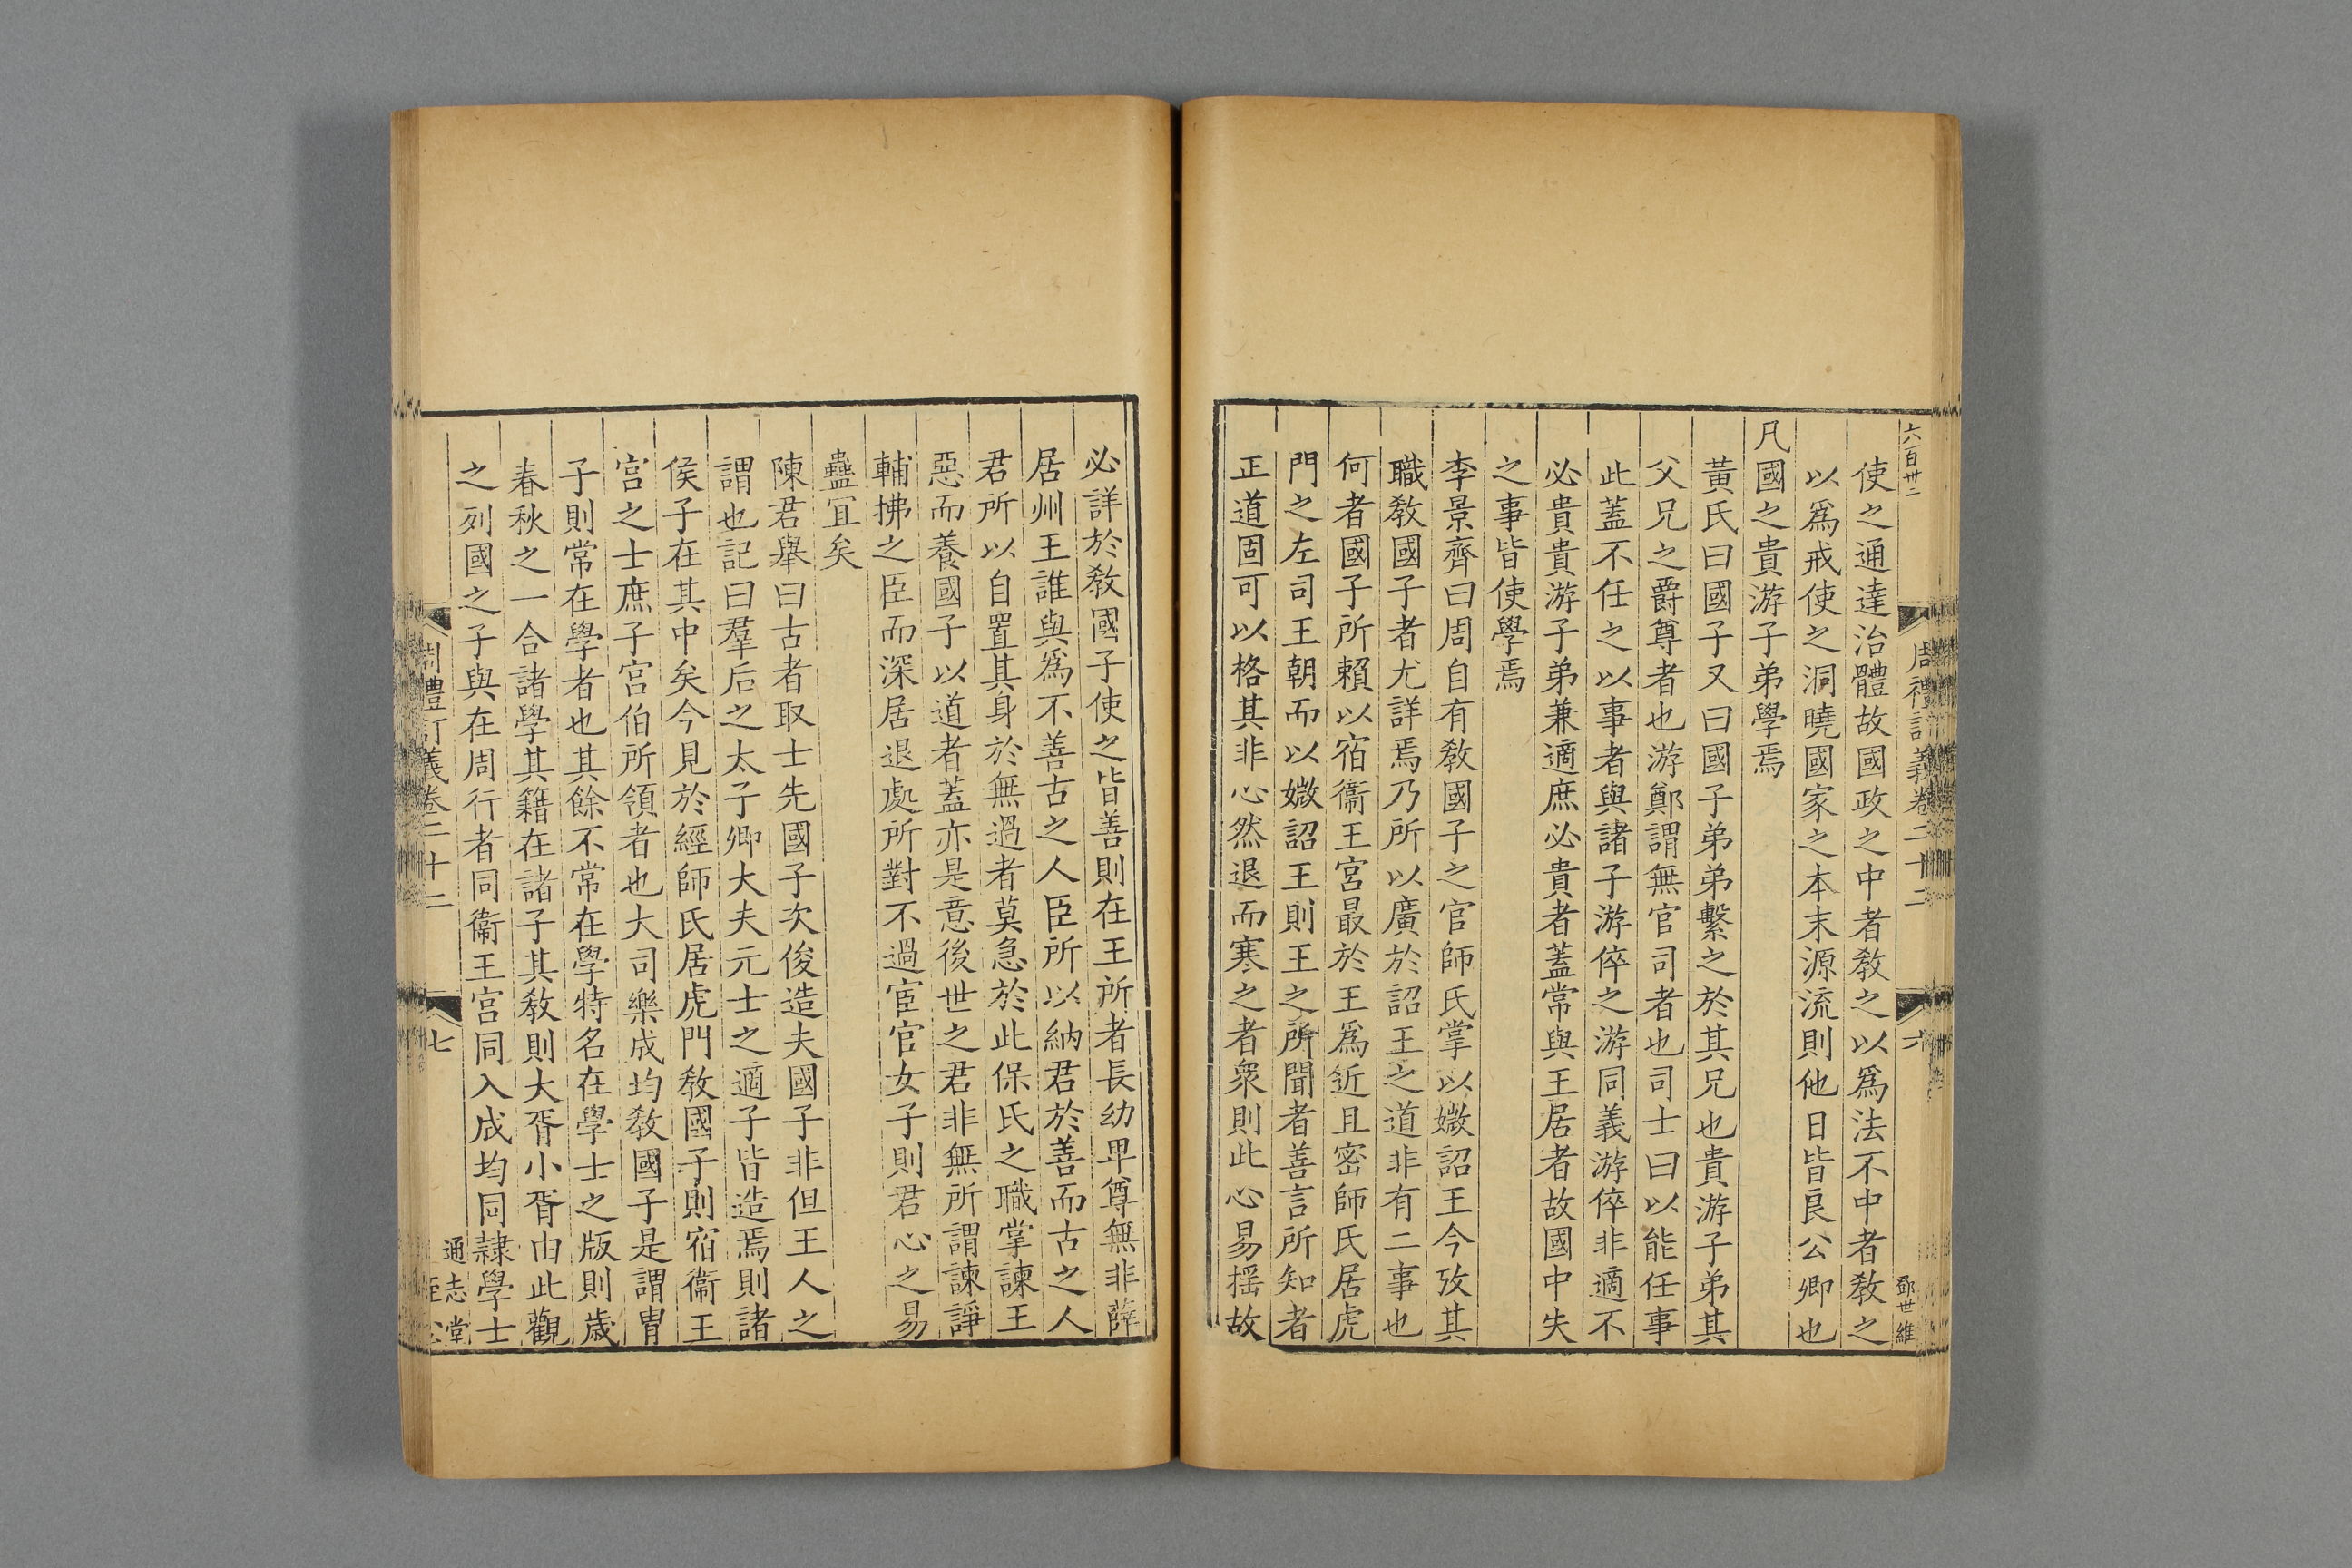 六百卅二
周禮訂義卷二十二
六
鄧世維
使之通達治體故國政之中者敎之以爲法不中者敎之
以爲戒使之洞曉國家之本末源流則他日皆良公卿也
凡國之貴游子弟學焉
黃氏曰國子又曰國子弟弟繫之於其兄也貴游子弟其
父兄之爵尊者也游鄭謂無官司者也司士曰以能任事
此蓋不任之以事者與諸子游倅之游同義游倅非適不
必貴貴游子弟兼適庶必貴者蓋常與王居者故國中失
之事皆使學焉
李景齊曰周自有敎國子之官師氏掌以媺詔王今攷其
職敎國子者尤詳焉乃所以廣於詔王之道非有二事也
何者國子所賴以宿衞王宮最於王爲近且密師氏居虎
門之左司王朝而以媺詔王則王之所聞者善言所知者
正道固可以格其非心然退而寒之者衆則此心易揺故
必詳於敎國子使之皆善則在王所者長幼卑尊無非薛
居州王誰與爲不善古之人臣所以納君於善而古之人
君所以自置其身於無過者莫急於此保氏之職掌諫王
惡而養國子以道者蓋亦是意後世之君非無所謂諫諍
輔拂之臣而深居退處所對不過宦官女子則君心之易
蠱冝矣
陳君舉曰古者取士先國子次俊造夫國子非但王人之
謂也記曰羣后之太子卿大夫元士之適子皆造焉則諸
侯子在其中矣今見於經師氏居虎門敎國子則宿衞王
宮之士庶子宮伯所領者也大司樂成均敎國子是謂胄
子則常在學者也其餘不常在學特名在學士之版則歲
春秋之一合諸學其籍在諸子其敎則大胥小胥由此觀
之列國之子與在周行者同衞王宮同入成均同隷學士
周禮訂義卷二十二
七
通志堂